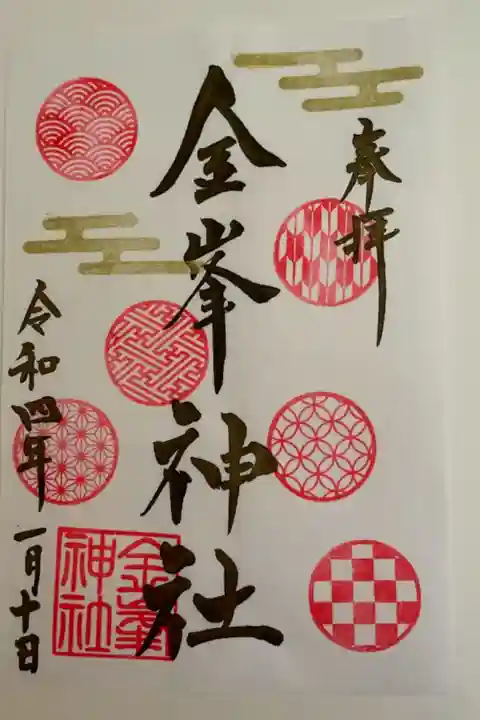 奉拝
金峯神社
令和四年一月十日
金峯
神社